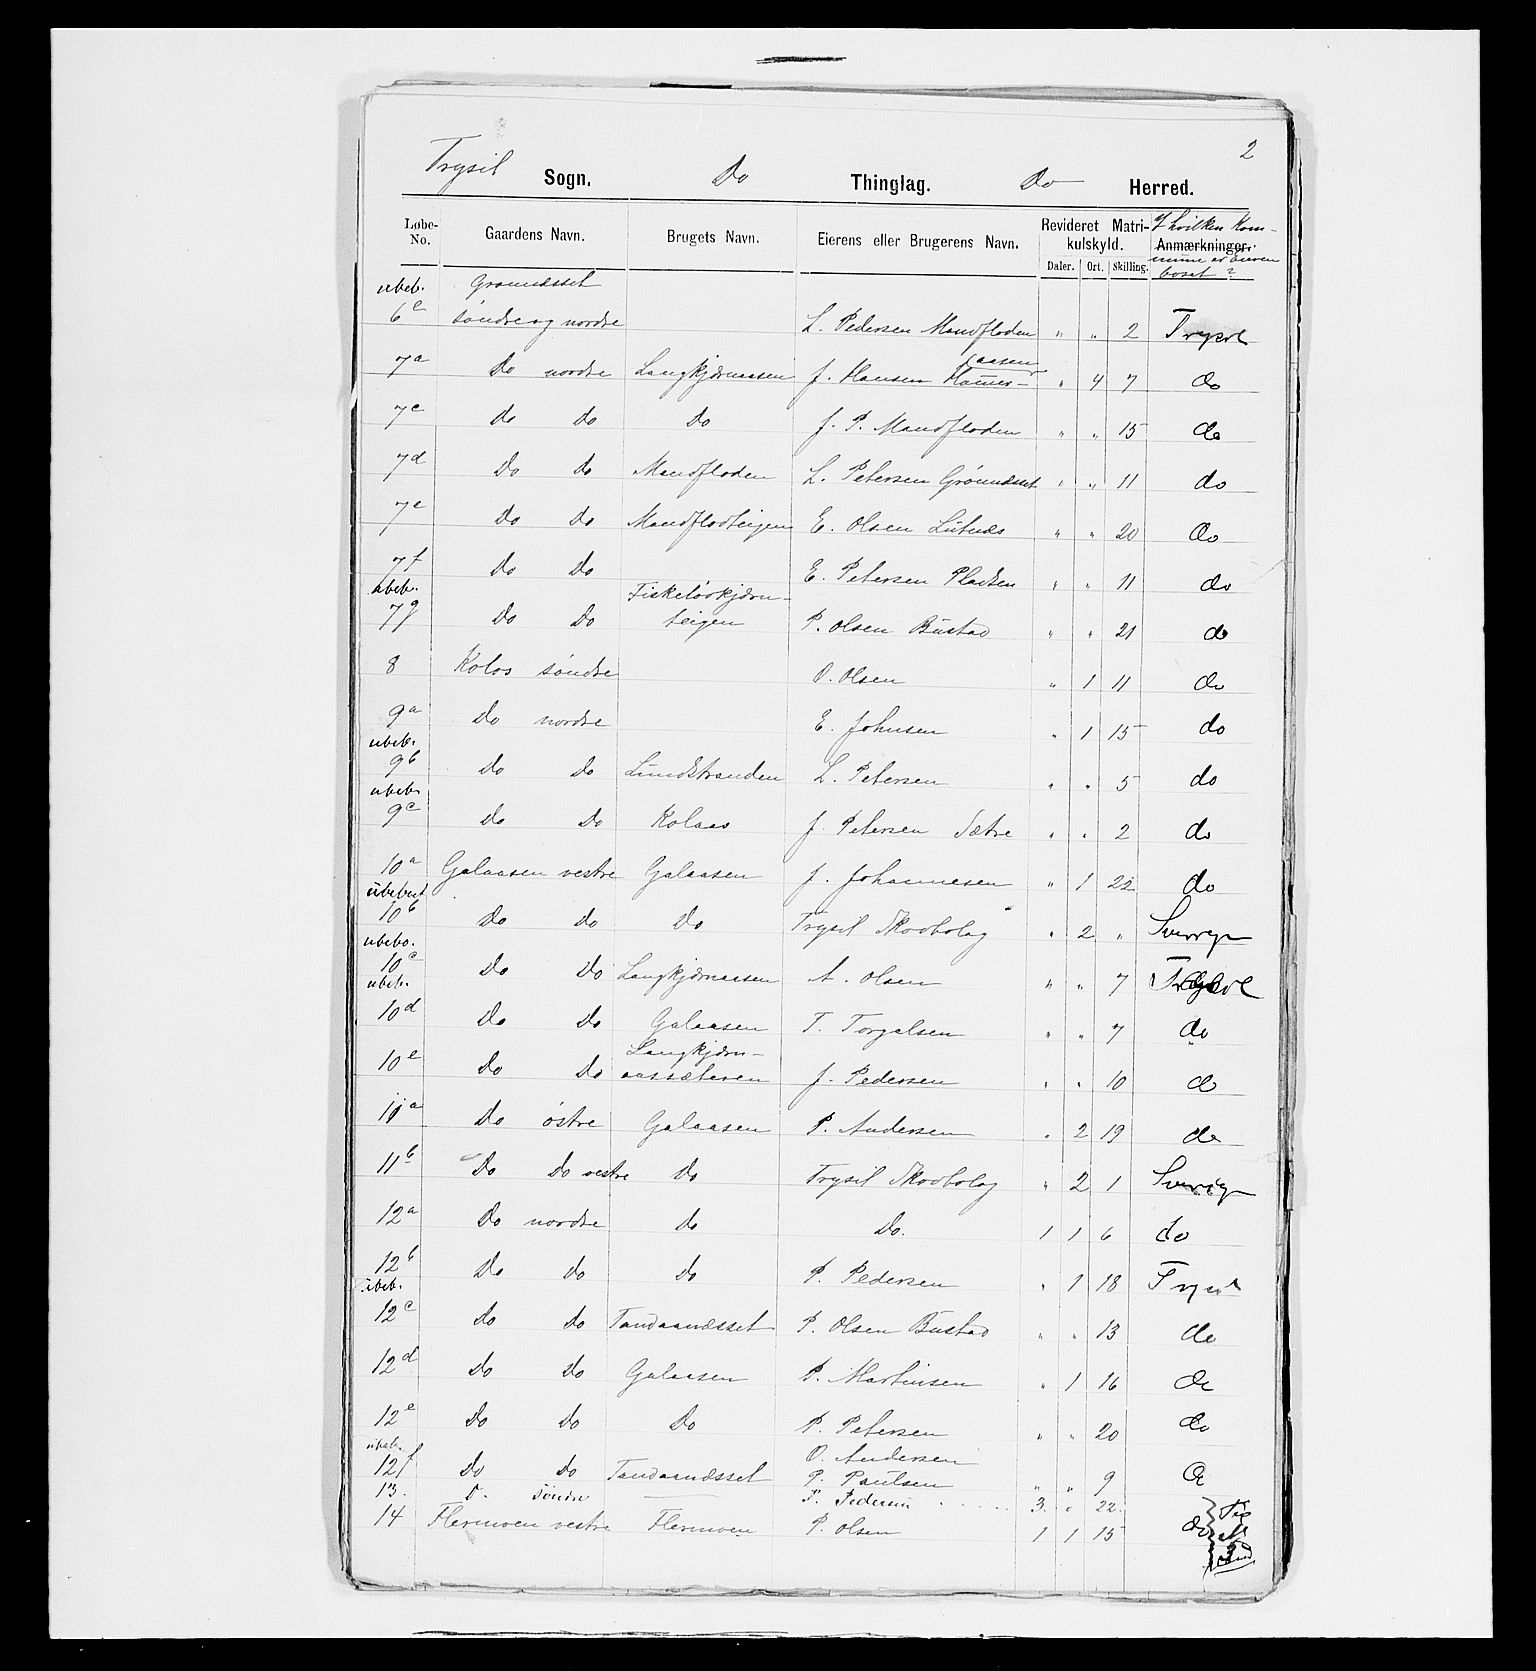 2
Trysil Sogn. Do Thinglag. Do Herred.
Løbe-No. Gaardens Navn. Brugets Navn. Eierens eller Brugerens Navn. Revideret Matrikulskyld. Daler. Ort. Skilling. Anmærkninger. I hvilken Kommune er Eieren bosat?
ubeb. Grønnæsset
6e søndre og nordre L. Pedersen Mandfloden " " 2 Trysil
7a Do nordre Langkjærnaasen J. Hansen aasen " 4 7 do
7c do do Do J. P. Mandfloden " " 15 do
7d Do do Mandfloden L. Petersen Grønnæsset " " 11 do
7e Do do Mandflodteigen E. Olsen Lutnæs " " 20 do
7f Do Do E. Petersen Pladsen " " 11 do
ubeb. Fisketørkjærn-
7g Do Do teigen P. Olsen Bustad " " 21 do
8 Kolos søndre O. Olsen " 1 11 do
9a Do nordre E. Johnsen " 1 15 do
ubeb.
9b Do do Lundstranden L. Petersen " " 5 do
ubeb.
9c do Do Kolaas J. Petersen Sætre " " 2 do
10a Galaasen vestre Galaasen J. Johannesen " 1 22 do
ubebod
10b Do do Do Trysil Skovbolag " 2 " Sverrige
ubebo.
10c Do Do Langkjærnaasen A. Olsen " " 7 Trysil
ubeb.
10d Do Do Galaasen T. Torgalsen " " 7 do
Langkjærn-
10e Do Do aassæteren J. Pedersen " " 10 do
11a Do østre Galaasen P. Andersen " 2 19 do
11b Do Do vestre Do Trysil Skovbolag " 2 1 Sverige
12a Do nordre do Do. 1 1 6 do
12b Do do do P. Pedersen " 1 18 Trysil
ubeb.
12c do do Tandaanæsset P. Olsen Bustad " " 13 do
12d Do do Galaasen P. Martinsen " 1 16 do
12e Do do Do P. Petersen " " 20 do
ubeb. O. Andersen
12f do do Tandaanæsset P. Paulsen " " 9 do
13. D. søndre P. Pedersen 3. " 22.
14 Flermoen vestre Flermoen P. Olsen 1 1 15 do